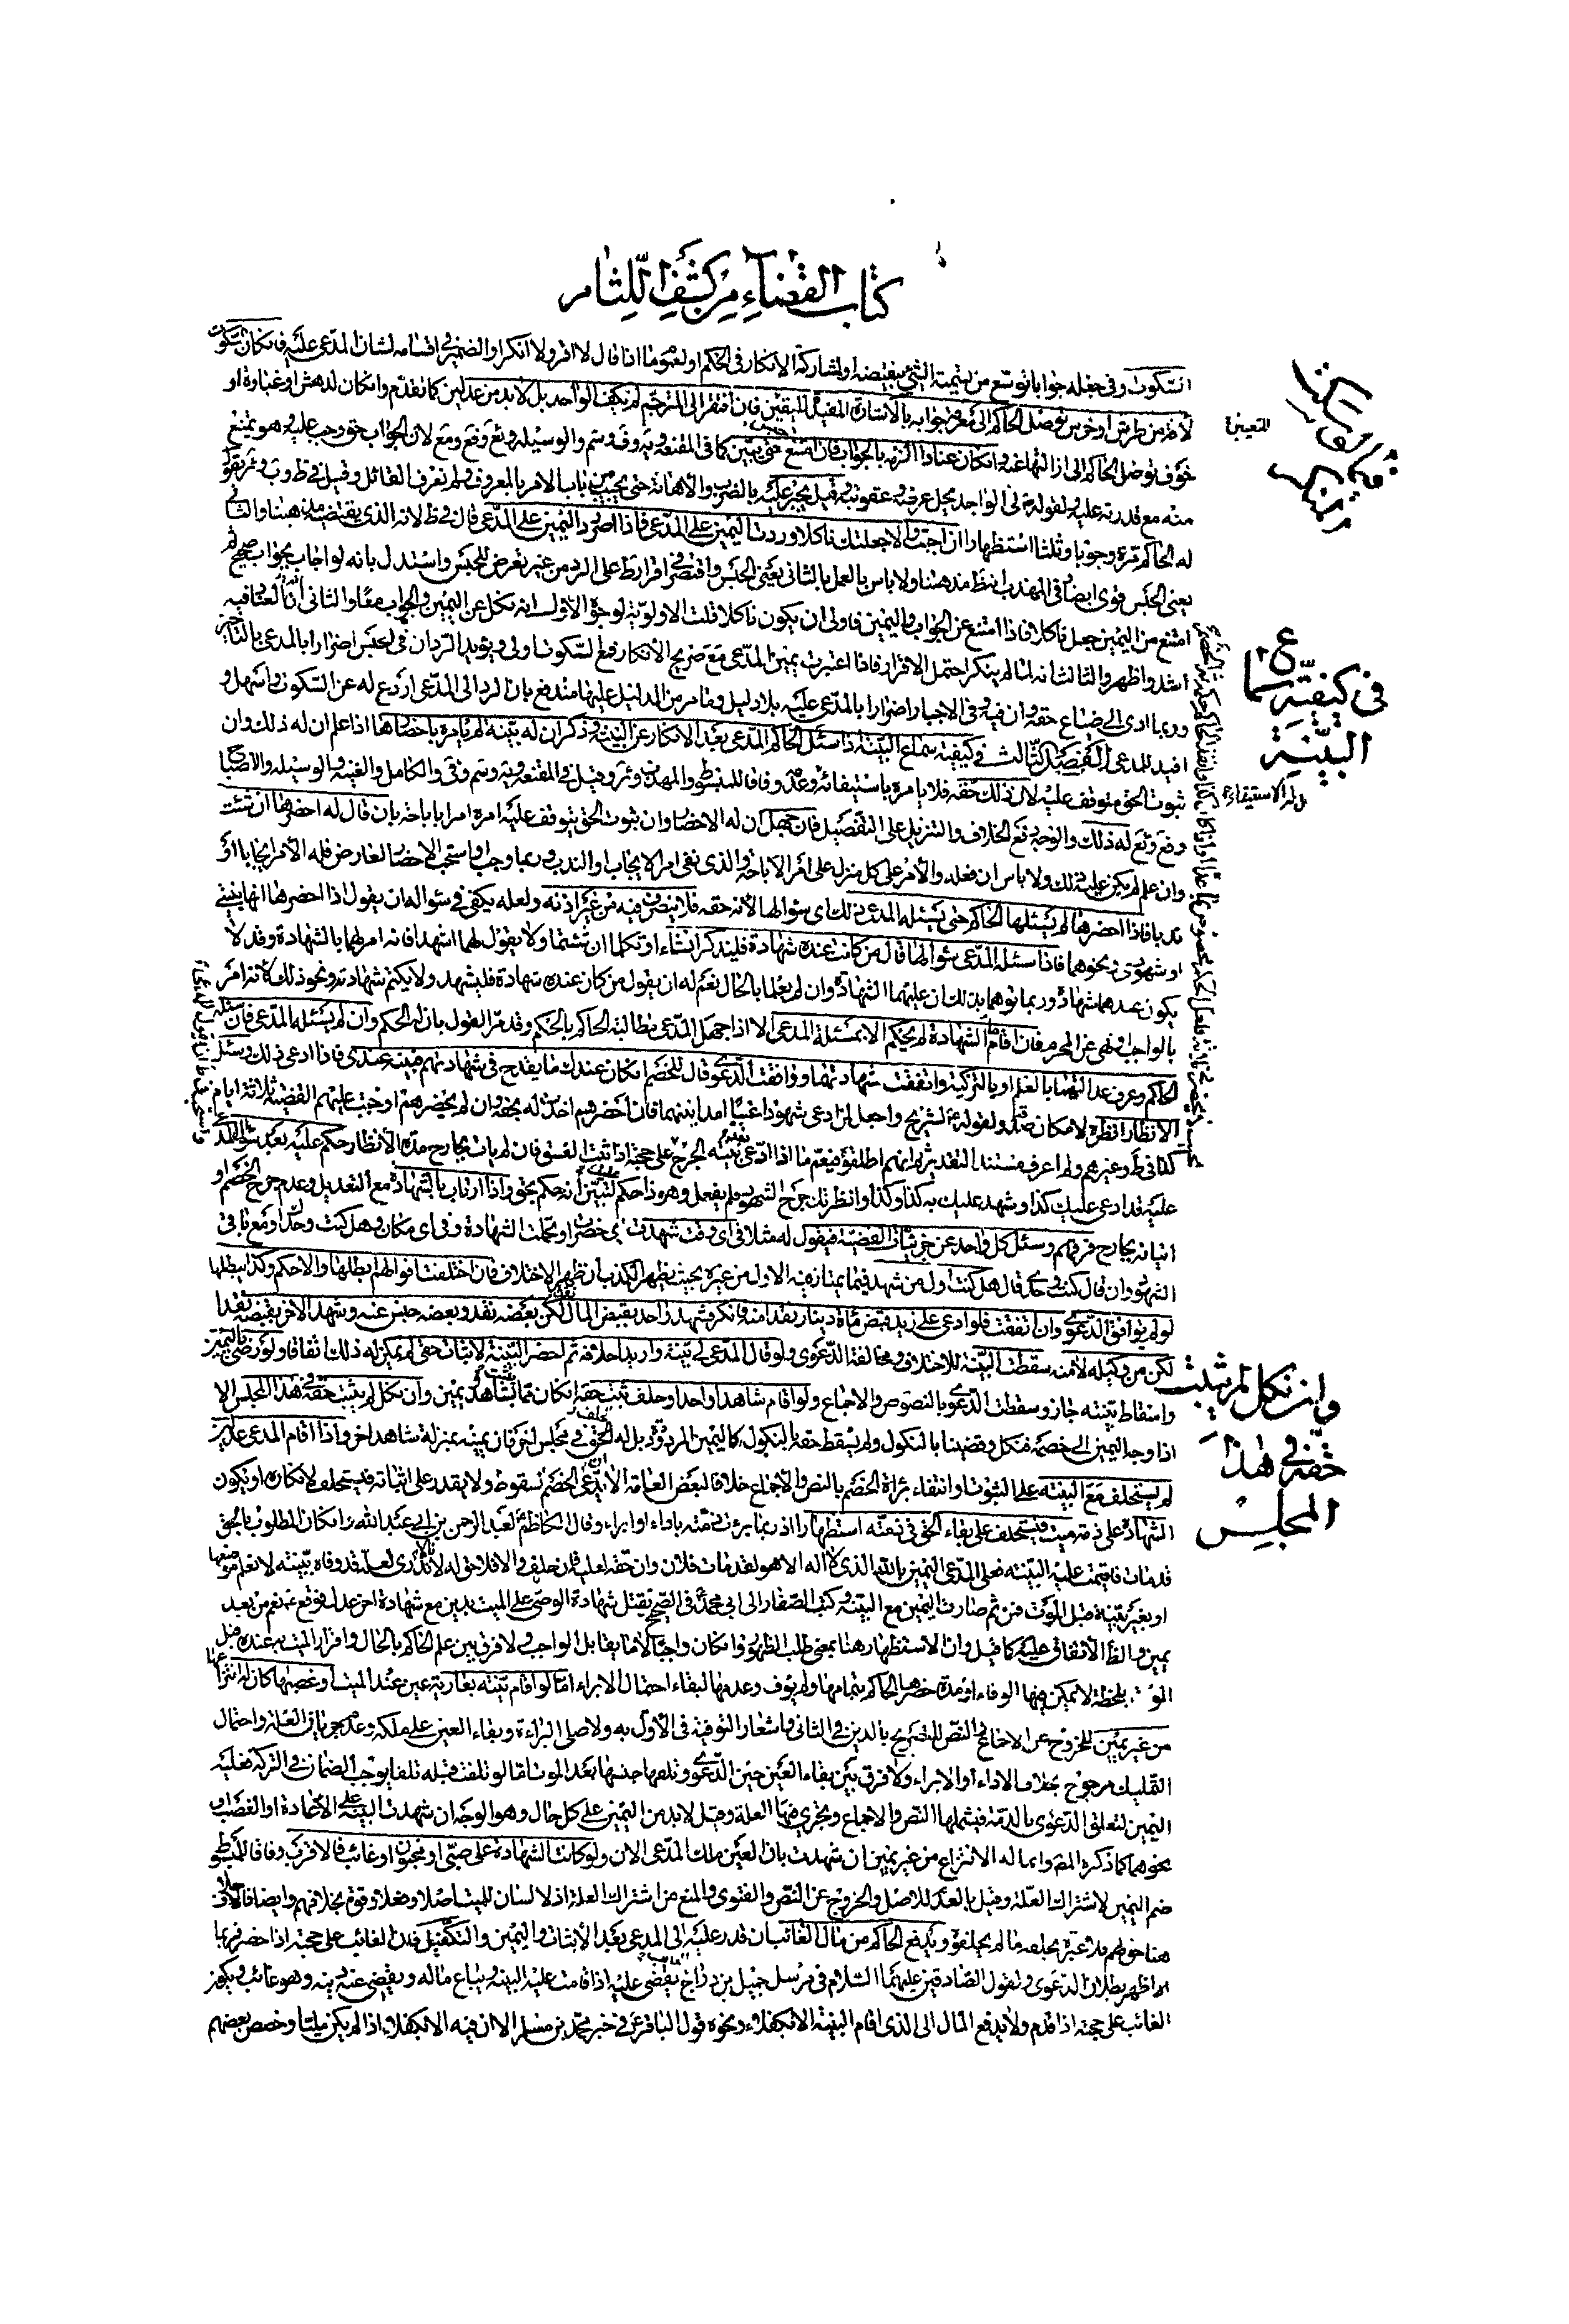 كتاب القضاء من كشف اللثام
السكوت وفي جعله جوابا توسع من تسمية الشيء بنقيضه او لمشاركة الانكار في الحكم او لعمومه ما اذا قال لا اقر ولا انكر والضمير في اقسامه لشان المدعى عليه فان كان السكوت
لافة من طرش او خرس توصل الحاكم الى معرفة جوابه بالاشارة المفيدة لليقين فان افتقر الى المترجم لم يكف الواحد بل لا بد من عدلين كما تقدم وان كان لدهش او غباوة او
خوف توصل الحاكم الى ازالتها عنه وان كان عنادا الزمه بالجواب فان امتنع حبس حتى يبين كما في المقنعة ويه وف وسم والوسيلة وئع وقع ومع لان الجواب حق وجب عليه وهو يمتنع
منه مع قدرته عليه ولقوله لي الواجد يحل عرضه وعقوبته وقيل يجبر عليه بالضرب والاهانة حتى يجيب من باب الامر بالمعروف ولم نعرف القائل وقيل في ط وب وئر يقول
له الحاكم مرة وجوبا وثلثا استظهارا ان اجبت والا جعلتك ناكلا ورددت اليمين على المدعي فاذا اصر رد اليمين على المدعي قال في ط لانه الذي يقتضيه مذهبنا والثاني
يعني الحبس قوي ايضا وفي المهذب انه ظ مذهبنا ولا باس بالعمل بالثاني يعني الحبس واقتصر في ئر ابط على الرد من غير تعرض للحبس واستدل بانه لو اجاب بجواب صحيح ثم
امتنع من اليمين جعل ناكلا فاذا امتنع عن الجواب واليمين فاولى ان يكون ناكلا قلت الاولوية لوجوه الاول انه نكل عن اليمين والجواب معا والثاني ان العناد فيه
اشد واظهر والثالث انه لما لم ينكر احتمل الاقرار فاذا اعتبرت يمين المدعي مع صريح الانكار فمع السكوت اولى ويؤيد الرد ان في الحبس اضرارا بالمدعي بالتاخير
وربما ادى الى ضياع حقه وان فيه وفي الاجبار اضرارا بالمدعى عليه بلا دليل وما مر من الدليل عليهما مندفع بان الرد الى المدعي اردع له عن السكوت واسهل و
افيد للمدعي الفصل الثالث في كيفية سماع البينة اذا سئل الحاكم المدعي بعد الانكار عن البينة وذكر ان له بينة لم يامره باحضارها اذا علم ان له ذلك وان
ثبوت الحق متوقف عليه لان ذلك حقه فلا يامره باستيفائه وعدمه وفاقا للمبسوط والمهذب وئر وقيل في المقنعة ويه وسم وفي والكامل والغنية والوسيلة والاصباح
وقع وئع له ذلك والوجه رفع الخلاف والتنزيل على التفصيل فان جهل ان له الاحضار وان ثبوت الحق يتوقف عليه امره امر اباحة بان قال له احضرها ان شئت
وان علم لم يكن عليه ذلك ولا باس ان فعله والامر على كل منزل على امر الاباحة والذي نفى امر الايجاب او الندب وربما وجب او استحب الاحضار لعارض فله الامر ايجابا او
ندبا فاذا احضرها لم يسئلها الحاكم حتى يسئله المدعي ذلك اي سؤالها لانه حقه فلا يتصرف فيه من غير اذنه ولعله يكفي في سؤاله ان يقول اذا احضرها انها بينتي
او شهودي ونحوهما فاذا سئله المدعي سؤالها قال من كانت عنده شهادة فليذكر ان شاء او تكلما ان شئتما ولا يقول لهما اشهدا فانه امر لهما بالشهادة وقد لا
يكون عندهما شهادة وربما توهما بذلك ان عليهما الشهادة وان لم يعلما بالحال نعم له ان يقول من كان عنده شهادة فليشهد ولا يكتم شهادته ونحو ذلك لانه امر
بالواجب ونهي عن المحرم فان اقام الشهادة لم يحكم الا بمسئلة المدعي الا اذا جهل المدعي مطالبة الحاكم بالحكم وقد مر القول بان له الحكم وان لم يسئله المدعي فان سئله
الحاكم وعرف عدالتهما بالعلم او بالتزكية واتفقت شهادتهما ووافقت الدعوى قال للخصم ان كان عندك ما يقدح في شهادتهم فبينه عندي فاذا ادعى ذلك وسئل
الانظار انظره لامكان صدقه ولقوله لشريح واجعل لمن ادعى شهودا غيبا امدا بينهما فان احضرهم اخذت له بحقه وان لم يحضرهم اوجبت عليهم القضية ثلاثة ايام
كما في ط وغيرهم ولم اعرف مستند التقدير ثم انهم اطلقوه فيعم ما اذا ادعى بعد بينة الجرح على حجته اذا ثبت الفسق فان لم يات بجارح مدة الانظار حكم عليه بعد سؤال المدعي
عليه قد ادعى عليك كذا وشهد عليك به كذا وكذا وانظرتك جرح الشهود ولم تفعل وهو ذا حكم عليك لتبين انه حكم بحق واذا ارتاب بالشهادة مع التعديل وعدم جرح الخصم و
اتيانه بجارح فرقهم وسئل كل واحد عن جزئيات القضية فيقول له مثلا في اي وقت شهدت اي حضرت او تحملت الشهادة وفي اي مكان وهل كنت وحدك او مع باقي
الشهود وان قال كنت وحدي قال هل كنت اول من شهد فيما يمتاز فيه الاول من غيره بحيث يظهر الكذب ان ظهر الاختلاف فان اختلفت اقوالهم ابطلها والا حكم وكذا يبطلها
لو لم يوافق الدعوى وان اتفقت فلو ادعى على زيد قبض مائة دينار نقدا منه فانكر فشهد واحد بقبض المال لكن بعضه نقد وبعضه جنس عنه وشهد الاخر بقبضه نقدا
لكن من وكيله لا منه سقطت البينة للاختلاف ومخالفة الدعوى ولو قال المدعي لي بينة واريد احلافه ثم احضر البينة لاثبات حقي لم يكن له ذلك اتفاقا ولو رضي باليمين
واسقاط بينته جاز وسقطت الدعوى بالنصوص والاجماع ولو اقام شاهدا واحدا وحلف ثبت حقه ان كان مما يثبت بشاهد ويمين وان نكل لم يثبت حقه في هذا المجلس الا
اذا وجه اليمين الى خصمه فنكل وقضينا بالنكول ولم يسقط حقه بالنكول كاليمين المردودة بل له الحلف في مجلس اخر فان يمينه بمنزلة شاهد اخر واذا اقام المدعي عدلين
لم يستحلف مع البينة على الثبوت او انتفاء براءة الخصم بالنص والاجماع خلافا لبعض العامة الا ان يدعي الخصم سقوطه ولا يقدر على اثباته فيستحلف لامكانه او يكون
الشهادة على ذمة ميت فيستحلف على بقاء الحق في ذمته استظهارا اذ ربما برئ ذمته باداء او ابراء وقال الكاظم لعبد الرحمن بن ابي عبد الله وان كان المطلوب بالحق
قد مات فاقيمت عليه البينة فعلى المدعي اليمين بالله الذي لا اله الا هو لقد مات فلان وان حقه لعليه فان حلف والا فلا حق له لانا لا ندري لعله قد وفاه ببينة لا نعلم موضعها
او بغير بينة قبل الموت فمن ثم صارت اليمين مع البينة وكتب الصفار الى ابي محمد في الصحيح تقبل شهادة الوصي على الميت بدين مع شهادة اخر عدل فوقع نعم من بعد
يمين والظ الاتفاق عليه كما قيل وان الاستظهار هنا بمعنى طلب الظهور وان كان واجبا لا ما يقابل الواجب ولا فرق بين علم الحاكم بالحال واقرار الميت به عنده قبل
الموت بلحظة لا تمكن فيها الوفاء او مدة حضرها الحاكم بتمامها ولم يوف وعدمها لبقاء احتمال الابراء اما لو اقام بينة بعارية عين عند الميت او غصبها كان له انتزاعها
من غير يمين للخروج عن الاجماع والنص للتصريح بالدين في الثاني واشعار التوفية في الاول به ولاصل البراءة وبقاء العين على ملكه وعدم جريان العلة واحتمال
التمليك مرجوح بخلاف الاداء او الابراء ولا فرق بين بقاء العين حين الدعوى وتلفها حينها بعد الموت اما لو تلفت قبله تلفا يوجب الضمان في التركة فعليه
اليمين لتعلق الدعوى بالذمة فيشملها النص والاجماع ويجري فيها العلة وقيل لا بد من اليمين على كل حال وهو الوجه ان شهدت البينة على الاعارة او الغصب و
نحوهما كما ذكره المص وانما له الانتزاع من غير يمين ان شهدت بان العين ملك المدعي الان ولو كانت الشهادة على صبي او مجنون او غائب فالاقرب وفاقا للمبسوط
ضم اليمين لاشتراك العلة وقيل بالعدم للاصل والخروج عن النص والفتوى والمنع من اشتراك العلة اذ لا لسان للميت اصلا وفعلا وقوة بخلافهم وايضا فالحلف
هنا حق لهم فلا عبرة بحلفه ما لم يحلفوه ويدفع الحاكم من مال الغائب ان قدر عليه الى المدعي بعد الاثبات واليمين والتكفيل فان الغائب على حجته اذا حضر فربما
اظهر بطلان الدعوى ولقول الصادقين عليهما السلام في مرسل جميل بن دراج الغائب يقضى عليه اذا قامت عليه البينة ويباع ماله ويقضى عنه دينه وهو غائب ويكون
الغائب على حجته اذا قدم ولا يدفع المال الى الذي اقام البينة الا بكفلاء ونحوه قول الباقر في خبر محمد بن مسلم الا ان فيه الا بكفلاء اذا لم يكن مليا وخصص بعضهم
في كيفية سماع
البينة
وان نكل لم يثبت
حقه في هذا
المجلس